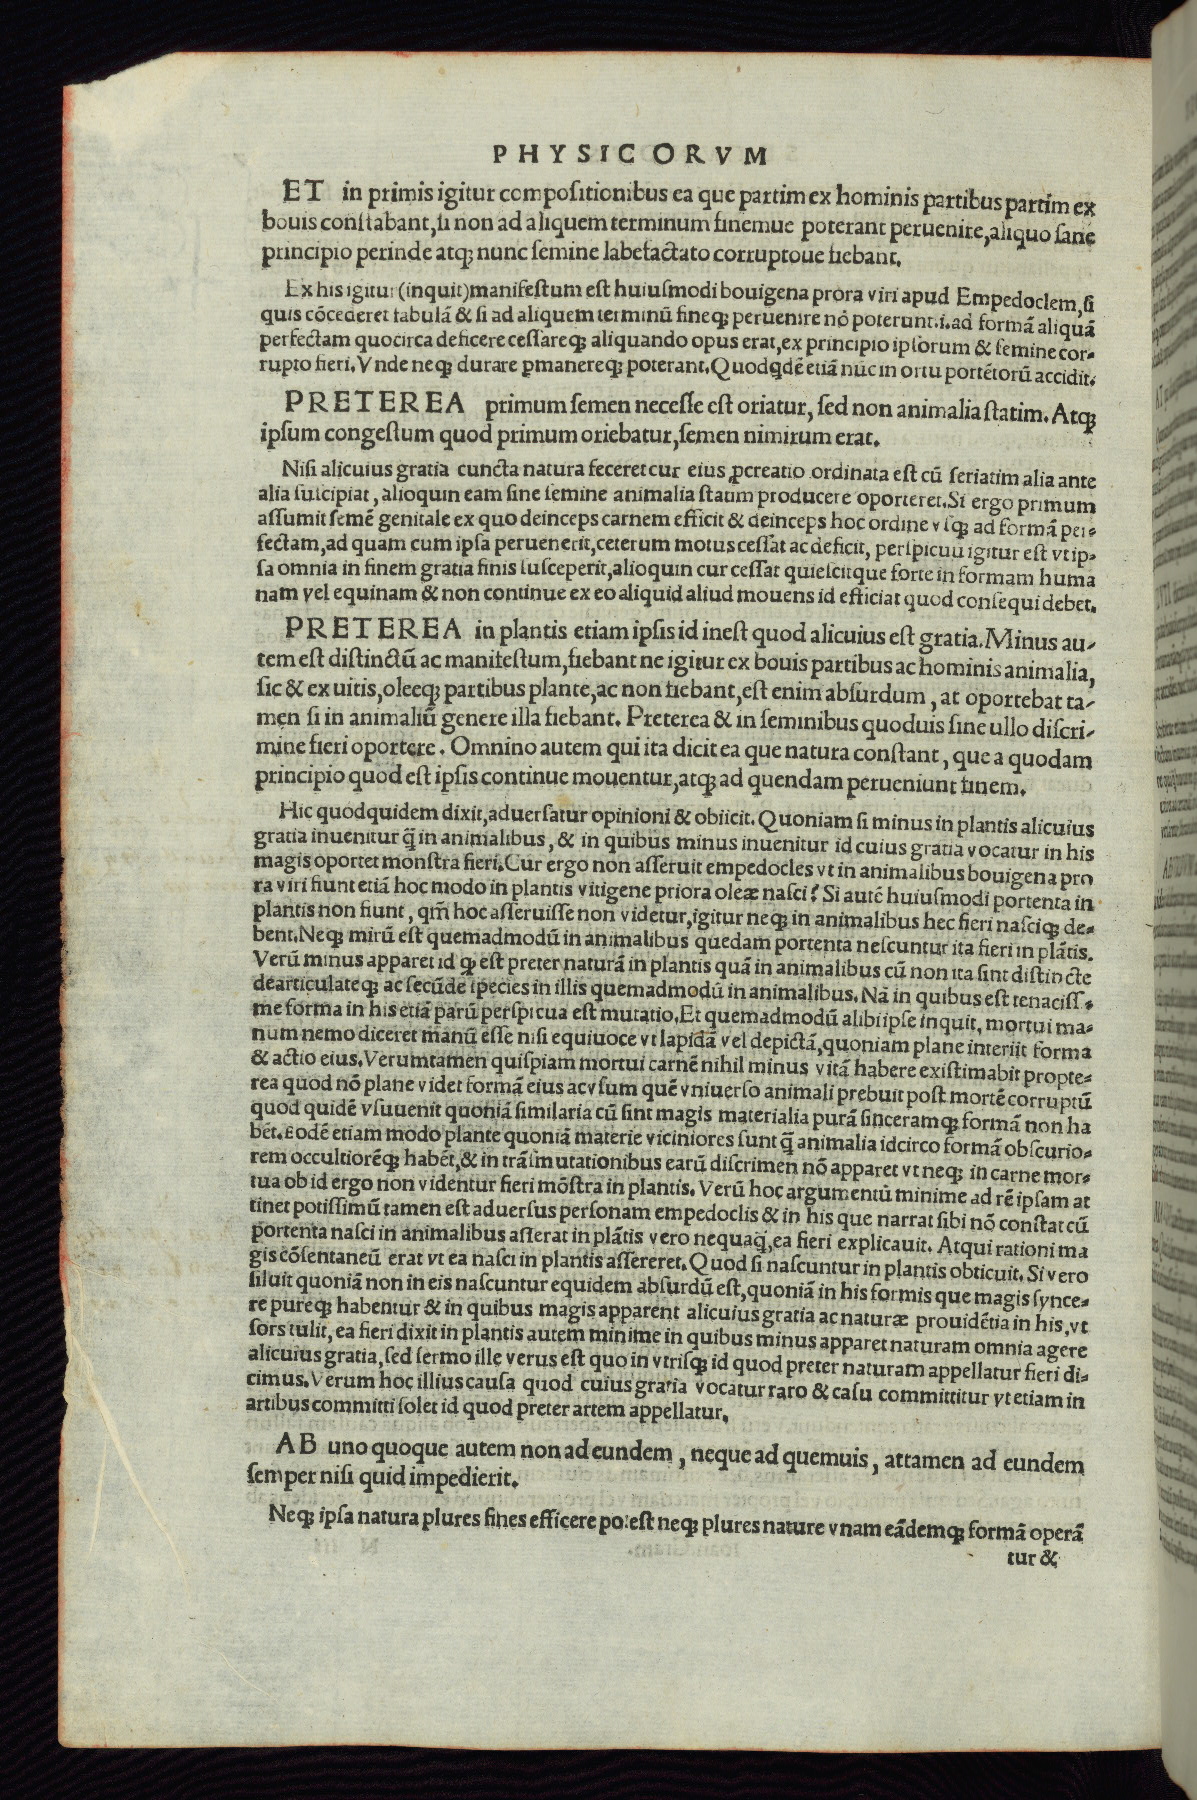 PHYSICORVM
ET in primis igitur compositionibus ea que partim ex hominis partibus partim ex
bouis constabant, si non ad aliquem terminum finemue poterant peruenire, aliquo sane
principio perinde atq; nunc semine labefactato corruptoue fiebant.
Ex his igitur (inquit) manifestum est huiusmodi bouigena prora viri apud Empedoclem, si
quis cōcederet fabulā & si ad aliquem terminū fineq; peruenire nō poterunt.i.ad formā aliquā
perfectam quocirca deficere cessareq; aliquando opus erat, ex principio ipsorum & semine cor-
rupto fieri. Vnde neq; durare ꝑmanereq; poterant. Quodqdē etiā nūc in ortu portētorū accidit.
PRETEREA primum semen necesse est oriatur, sed non animalia statim. Atq;
ipsum congestum quod primum oriebatur, semen nimirum erat.
Nisi alicuius gratia cuncta natura feceret cur eius ꝓcreatio ordinata est cū seriatim alia ante
alia suscipiat, alioquin eam sine semine animalia statim producere oporteret. Si ergo primum
assumit semē genitale ex quo deinceps carnem efficit & deinceps hoc ordine vsq; ad formā per-
fectam, ad quam cum ipsa peruenerit, ceterum motus cessat ac deficit, perspicuū igitur est vt ip-
sa omnia in finem gratia finis susceperit, alioquin cur cessat quiescitque forte in formam huma
nam vel equinam & non continue ex eo aliquid aliud mouens id efficiat quod consequi debet.
PRETEREA in plantis etiam ipsis id inest quod alicuius est gratia. Minus au-
tem est distinctū ac manifestum, fiebant ne igitur ex bouis partibus ac hominis animalia,
sic & ex uitis, oleeq; partibus plante, ac non fiebant, est enim absurdum, at oportebat ta-
men si in animaliū genere illa fiebant. Preterea & in seminibus quoduis sine ullo discri-
mine fieri oportere. Omnino autem qui ita dicit ea que natura constant, que a quodam
principio quod est ipsis continue mouentur, atq; ad quendam perueniunt finem.
Hic quodquidem dixit, aduersatur opinioni & obiicit. Quoniam si minus in plantis alicuius
gratia inuenitur q̄ in animalibus, & in quibus minus inuenitur id cuius gratia vocatur in his
magis oportet monstra fieri. Cur ergo non asseruit empedocles vt in animalibus bouigena pro
ra viri fiunt etiā hoc modo in plantis vitigene priora oleæ nasci? Si autē huiusmodi portenta in
plantis non fiunt, qm̄ hoc asseruisse non videtur, igitur neq; in animalibus hec fieri nasciq; de-
bent. Neq; mirū est quemadmodū in animalibus quedam portenta nescuntur ita fieri in plātis.
Verū minus apparet id qꝫ est preter naturā in plantis quā in animalibus cū non ita sint distincte
dearticulateq; ac secūde species in illis quemadmodū in animalibus. Nā in quibus est tenaciss-
me forma in his etiā parū perspicua est mutatio. Et quemadmodū alibi ipse inquit, mortui ma-
num nemo diceret manū esse nisi equiuoce vt lapidā vel depictā, quoniam plane interiit forma
& actio eius. Verumtamen quispiam mortui carnē nihil minus vitā habere existimabit propte-
rea quod nō plane videt formā eius ac vsum quē vniuerso animali prebuit post mortē corruptū
quod quidē vsuuenit quoniā similaria cū sint magis materialia purā sinceramq; formā non ha
bēt. Eodē etiam modo plante quoniā materie viciniores sunt q̄ animalia idcirco formā obscurio-
rem occultiorēq; habēt, & in trāsmutationibus earū discrimen nō apparet vt neq; in carne mor-
tua ob id ergo non videntur fieri mōstra in plantis. Verū hoc argumentū minime ad rē ipsam at
tinet potissimū tamen est aduersus personam empedoclis & in his que narrat sibi nō constat cū
portenta nasci in animalibus asserat in plātis vero nequaq̄, ea fieri explicauit. Atqui rationi ma
gis cōsentaneū erat vt ea nasci in plantis assereret. Quod si nascuntur in plantis obticuit. Si vero
siluit quoniā non in eis nascuntur equidem absurdū est, quoniā in his formis que magis synce-
re pureq; habentur & in quibus magis apparent alicuius gratia ac naturæ prouidētia in his, vt
fors tulit, ea fieri dixit in plantis autem minime in quibus minus apparet naturam omnia agere
alicuius gratia, sed sermo ille verus est quo in vtrisq; id quod preter naturam appellatur fieri di-
cimus. Verum hoc illius causa quod cuius gratia vocatur raro & casu committitur vt etiam in
artibus committi solet id quod preter artem appellatur.
AB uno quoque autem non ad eundem, neque ad quemuis, attamen ad eundem
semper nisi quid impedierit.
Neq; ipsa natura plures fines efficere potest neq; plures nature vnam eādemq; formā operā
tur &